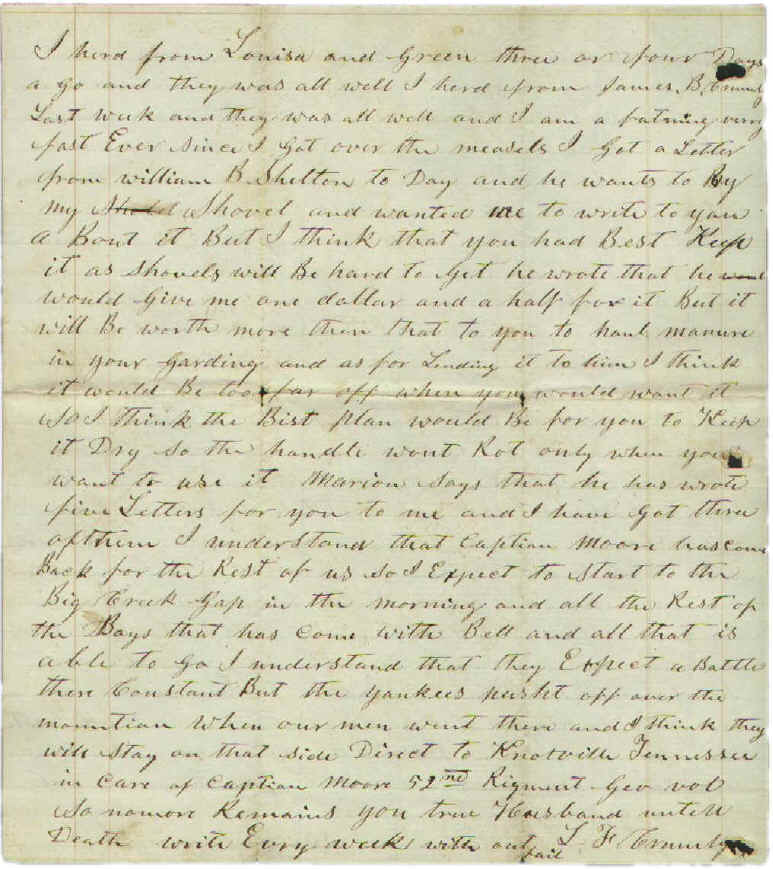 I herd from Louisa and Green three or four Days
a go and they was all well I herd from James B
Last week and they was all well and I am a fatning very
fast Ever since I got over the measels I got a Letter
from william B. Shelton to Day and he wants to By
my Shovel and wanted me to write to you
a Bout it But I think that you had Best Keep
it as shovels will Be hard to Get he wrote that he
would Give me one dollar and a half for it But it
will Be worth more then that to you to haul manure
in your Garding and as for Lending it to him I think
it would Be too far off when you would want it
So I think the Bist plan would Be for you to Keep
it Dry so the handle wont Rot only when you
want to use it Marion Says that he has wrote
five Letters for you to me and I have Got three
of them I understand that Captian Moore has come
Back for the Rest of us so I Expect to Start to the
Big Creek Gap in the morning and all the Rest of
the Boys that has Come with Bell and all that is
able to Go I understand that they Expect a Battle
there Constant But the yankees pusht off over the
mountian When our men went there and I think they
will Stay on that side Direct to Knotville Tennessee
in Care of Captian Moore 52nd Rigment Geo vol
So nomore Remains you true Husband untill
Death write Evry week with out fail L F